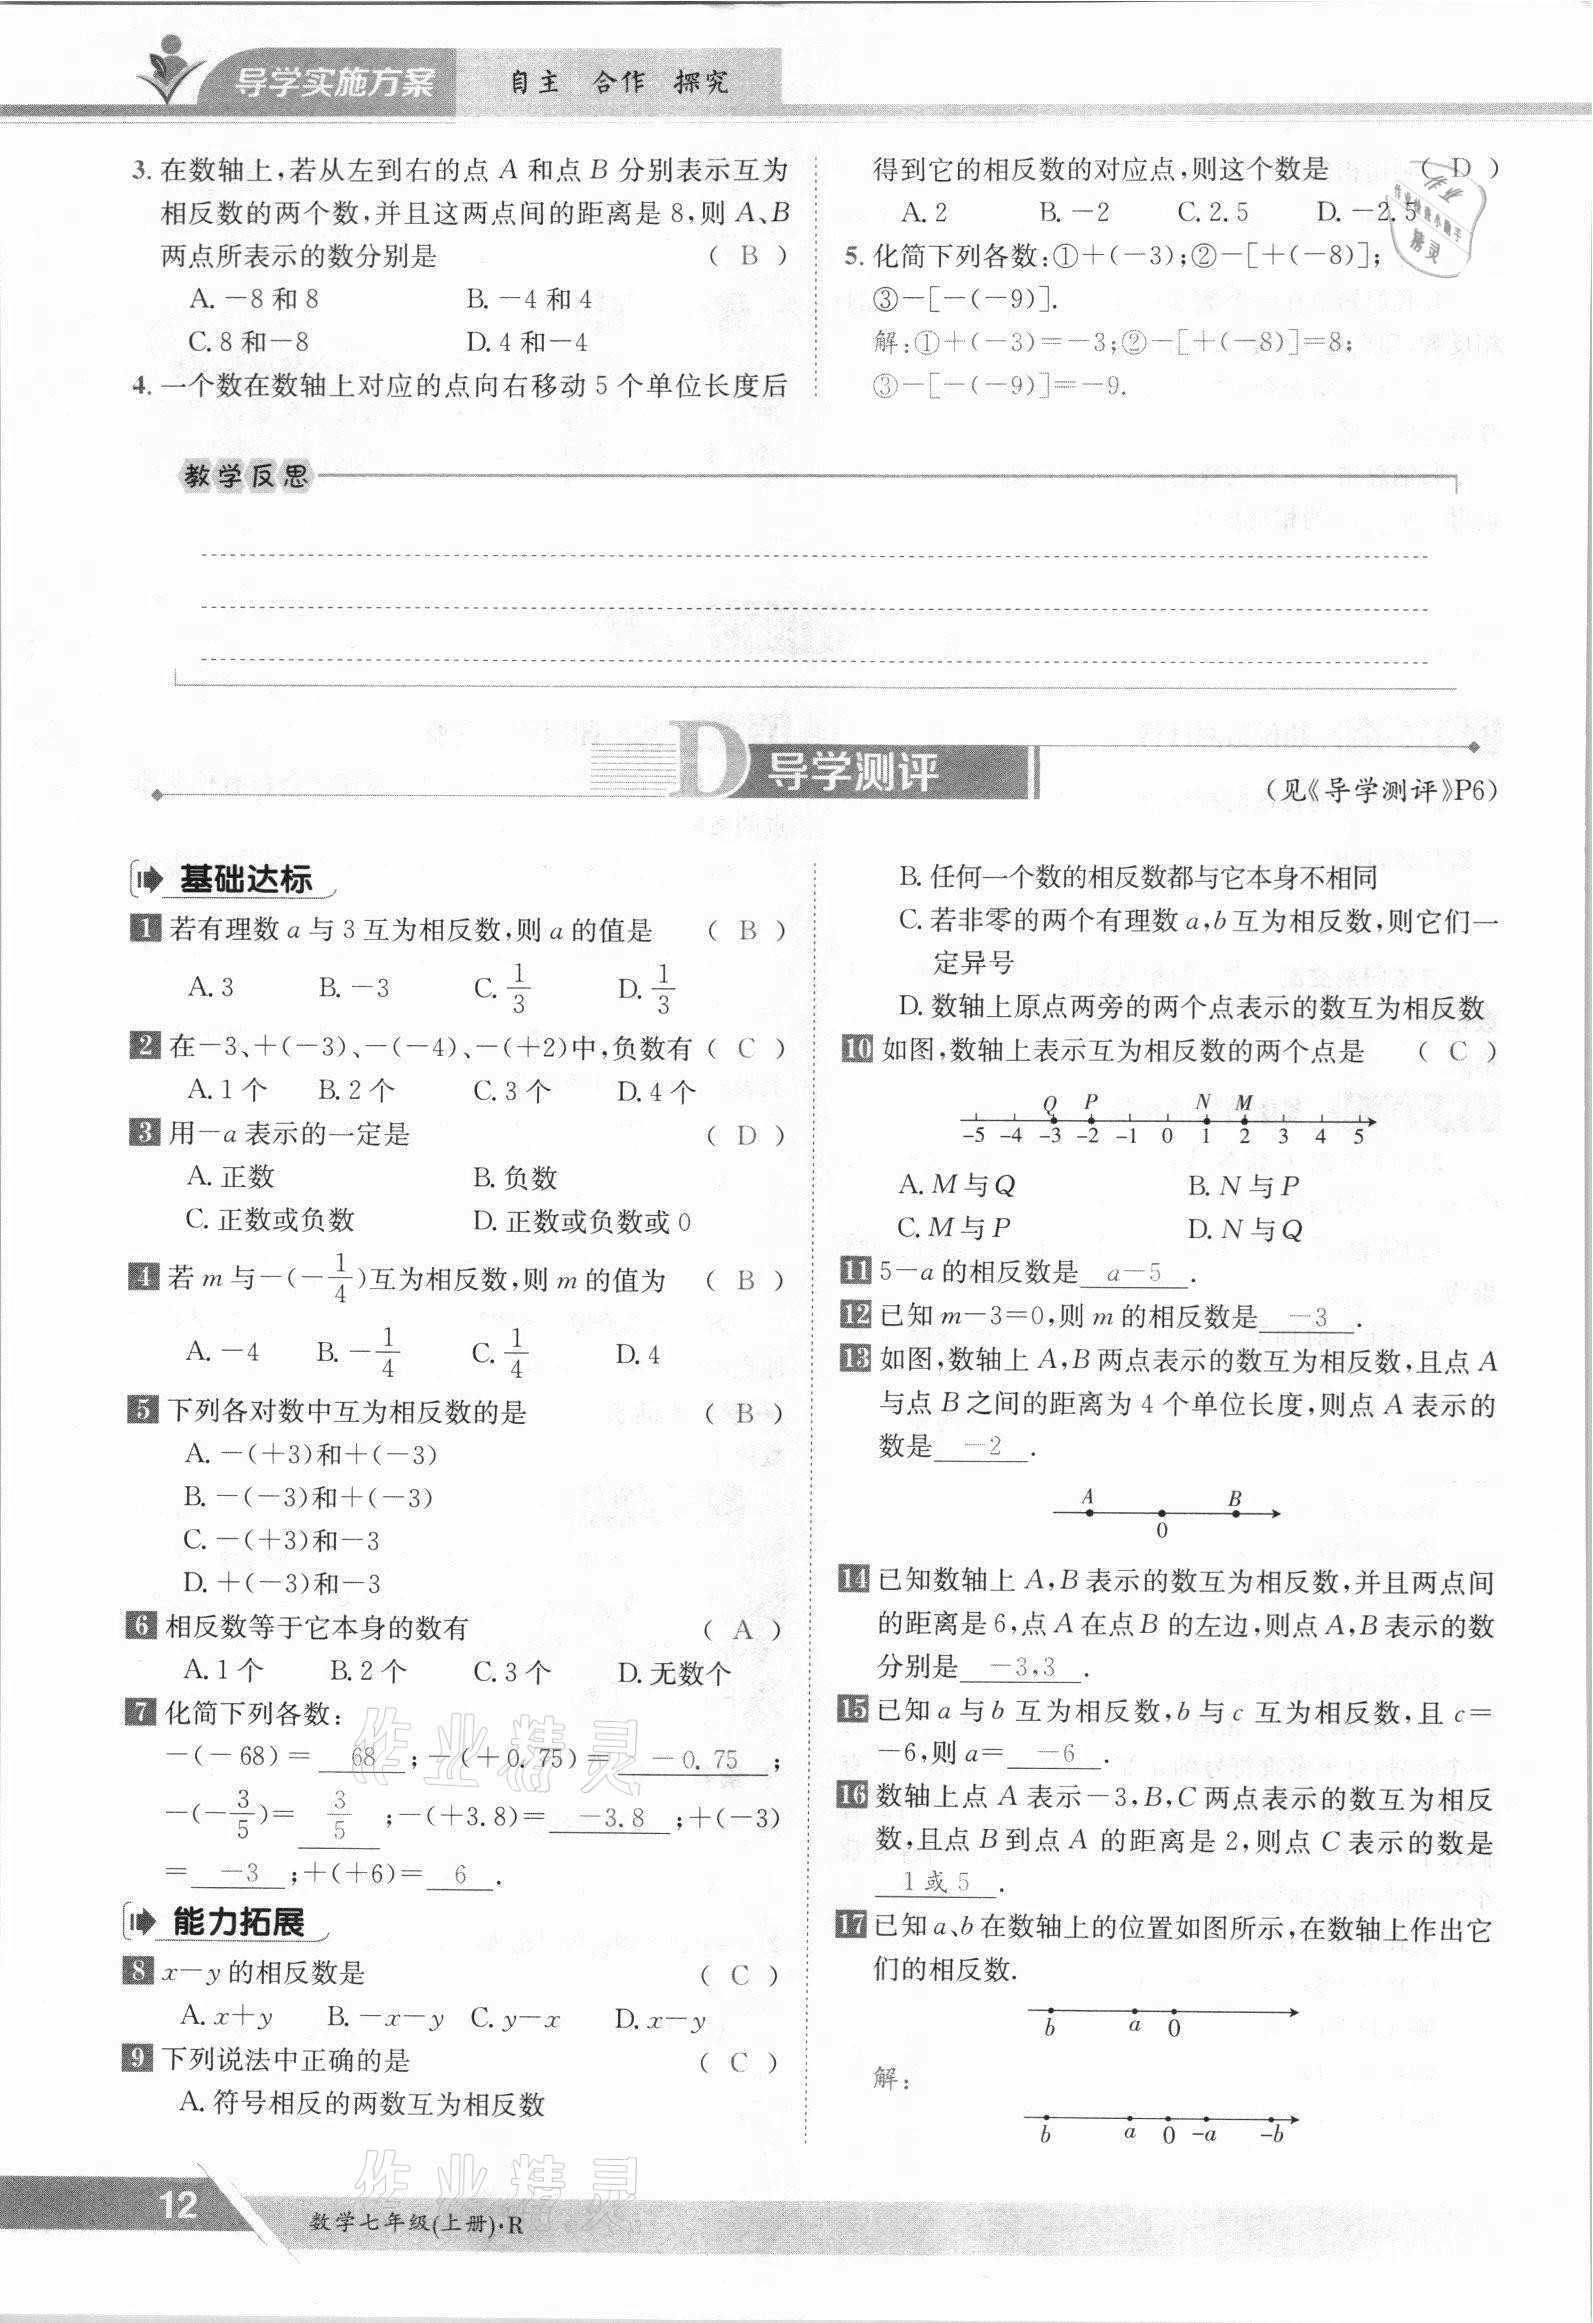 导学实施方案 自主 合作 探究
3. 在数轴上,若从左到右的点 A 和点 B 分别表示互为
相反数的两个数,并且这两点间的距离是 8,则 A、B
两点所表示的数分别是 ( B )
A. －8 和 8 B. －4 和 4
C. 8 和－8 D. 4 和－4
4. 一个数在数轴上对应的点向右移动 5 个单位长度后
得到它的相反数的对应点,则这个数是 ( D )
A. 2 B. －2 C. 2.5 D. －2.5
5. 化简下列各数:①＋(－3);②－[＋(－8)];
③－[－(－9)].
解:①＋(－3)＝－3;②－[＋(－8)]＝8;
③－[－(－9)]＝－9.
教学反思
D 导学测评
(见《导学测评》P6)
基础达标
1 若有理数 a 与 3 互为相反数,则 a 的值是 ( B )
A. 3 B. －3 C. 1/3 D. 1/3
2 在－3、＋(－3)、－(－4)、－(＋2)中,负数有 ( C )
A. 1 个 B. 2 个 C. 3 个 D. 4 个
3 用－a 表示的一定是 ( D )
A. 正数 B. 负数
C. 正数或负数 D. 正数或负数或 0
4 若 m 与－(－1/4)互为相反数,则 m 的值为 ( B )
A. －4 B. －1/4 C. 1/4 D. 4
5 下列各对数中互为相反数的是 ( B )
A. －(＋3)和＋(－3)
B. －(－3)和＋(－3)
C. －(＋3)和－3
D. ＋(－3)和－3
6 相反数等于它本身的数有 ( A )
A. 1 个 B. 2 个 C. 3 个 D. 无数个
7 化简下列各数:
－(－68)＝ 68 ;－(＋0.75)＝ －0.75 ;
－(－3/5)＝ 3/5 ;－(＋3.8)＝ －3.8 ;＋(－3)
＝ －3 ;＋(＋6)＝ 6 .
能力拓展
8 x－y 的相反数是 ( C )
A. x＋y B. －x－y C. y－x D. x－y
9 下列说法中正确的是 ( C )
A. 符号相反的两数互为相反数
B. 任何一个数的相反数都与它本身不相同
C. 若非零的两个有理数 a,b 互为相反数,则它们一
定异号
D. 数轴上原点两旁的两个点表示的数互为相反数
10 如图,数轴上表示互为相反数的两个点是 ( C )
Q P N M
-5 -4 -3 -2 -1 0 1 2 3 4 5
A. M 与 Q B. N 与 P
C. M 与 P D. N 与 Q
11 5－a 的相反数是 a－5 .
12 已知 m－3＝0,则 m 的相反数是 －3 .
13 如图,数轴上 A,B 两点表示的数互为相反数,且点 A
与点 B 之间的距离为 4 个单位长度,则点 A 表示的
数是 －2 .
A B
0
14 已知数轴上 A,B 表示的数互为相反数,并且两点间
的距离是 6,点 A 在点 B 的左边,则点 A,B 表示的数
分别是 －3,3 .
15 已知 a 与 b 互为相反数,b 与 c 互为相反数,且 c＝
－6,则 a＝ －6 .
16 数轴上点 A 表示－3,B,C 两点表示的数互为相反
数,且点 B 到点 A 的距离是 2,则点 C 表示的数是
1 或 5 .
17 已知 a、b 在数轴上的位置如图所示,在数轴上作出它
们的相反数.
b a 0
解:
b a 0 -a -b
作业精灵
作业精灵
12
数学七年级(上册)·R